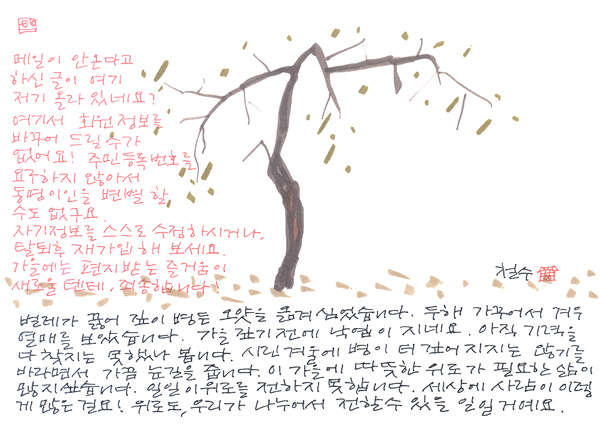 메일이 안온다고
하신 글이 여기
저기 올라 있네요?
여기서 회원정보를
바꾸어 드릴 수가
없어요! 주민등록번호를
요구하지 않아서
동명이인을 변별 할
수도 없구요.
자기정보를 스스로 수정하시거나,
탈퇴후 재가입 해 보세요.
가을에는 편지받는 즐거움이
새로울텐데, 죄송합니다!
철수
벌레가 끓어 깊이 병든 모과를 옮겨 심었습니다. 두해 가꾸어서 겨우
열매를 보았습니다. 가을 깊기전에 낙엽이 지네요. 아직 기력을
다 찾지는 못했나 봅니다. 시린 겨울에 병이 더 깊어 지지는 않기를
바라면서 가끔 눈길을 줍니다. 이 가을에 따뜻한 위로가 필요한 삶이
많지 싶습니다. 일일이 위로를 전하지 못합니다. 세상에 사람이 이렇
게 많은 걸요! 위로도, 우리가 나누어서 전할수 있을 일일 거예요.